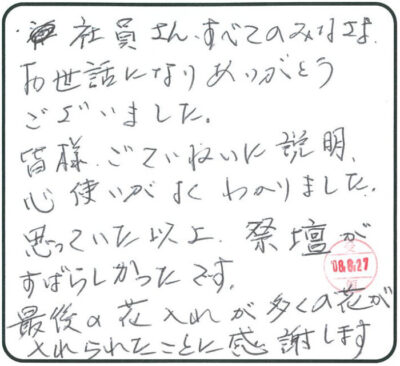 社員さん、すべてのみなさま
お世話になりありがとう
ございました。
皆様、ごていねいに説明、
心使いがよくわかりました。
思っていた以上、祭壇が
すばらしかったです。
'08.8.27
最後の花入れが多くの花が
入れられたことに感謝します